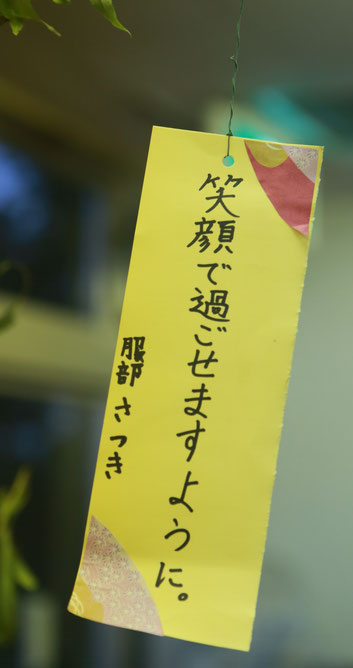 笑顔で過ごせますように。
服部さつき